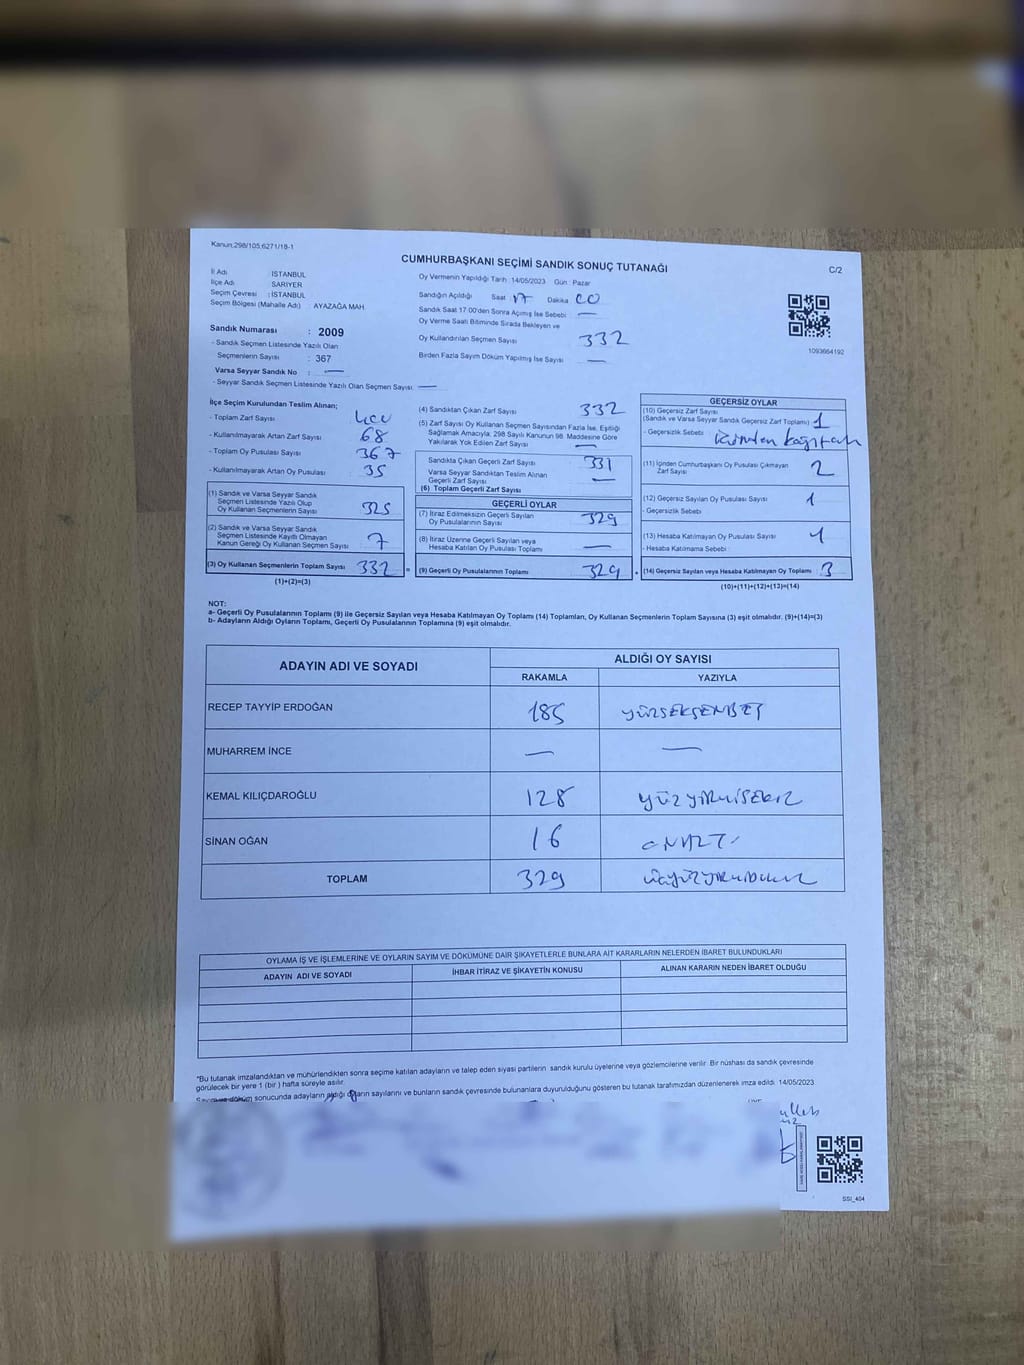 Kanun:298/105;6271/18-1
CUMHURBAŞKANI SEÇİMİ SANDIK SONUÇ TUTANAĞI
C/2
İl Adı : İSTANBUL
İlçe Adı : SARIYER
Seçim Çevresi : İSTANBUL
Seçim Bölgesi (Mahalle Adı) : AYAZAĞA MAH.
Sandık Numarası : 2009
- Sandık Seçmen Listesinde Yazılı Olan
Seçmenlerin Sayısı : 367
Varsa Seyyar Sandık No : —
- Seyyar Sandık Seçmen Listesinde Yazılı Olan Seçmen Sayısı: —
Oy Vermenin Yapıldığı Tarih : 14/05/2023 Gün : Pazar
Sandığın Açıldığı Saat 17 Dakika 00
Sandık Saat 17.00'den Sonra Açımış İse Sebebi : —
Oy Verme Saati Bitiminde Sırada Bekleyen ve
Oy Kullandırılan Seçmen Sayısı 332
Birden Fazla Sayım Döküm Yapılmış İse Sayısı —
1093664192
İlçe Seçim Kurulundan Teslim Alınan;
- Toplam Zarf Sayısı 400
- Kullanılmayarak Artan Zarf Sayısı 68
- Toplam Oy Pusulası Sayısı 367
- Kullanılmayarak Artan Oy Pusulası 35
(1) Sandık ve Varsa Seyyar Sandık
Seçmen Listesinde Yazılı Olup
Oy Kullanan Seçmenlerin Sayısı 325
(2) Sandık ve Varsa Seyyar Sandık
Seçmen Listesinde Kayıtlı Olmayan
Kanun Gereği Oy Kullanan Seçmen Sayısı 7
(3) Oy Kullanan Seçmenlerin Toplam Sayısı 332 =
(1)+(2)=(3)
(4) Sandıktan Çıkan Zarf Sayısı 332
(5) Zarf Sayısı Oy Kullanan Seçmen Sayısından Fazla İse, Eşitliği
Sağlamak Amacıyla; 298 Sayılı Kanunun 98. Maddesine Göre
Yakılarak Yok Edilen Zarf Sayısı —
Sandıkta Çıkan Geçerli Zarf Sayısı 331
Varsa Seyyar Sandıktan Teslim Alınan
Geçerli Zarf Sayısı —
(6) Toplam Geçerli Zarf Sayısı
GEÇERLİ OYLAR
(7) İtiraz Edilmeksizin Geçerli Sayılan
Oy Pusulalarının Sayısı 329
(8) İtiraz Üzerine Geçerli Sayılan veya
Hesaba Katılan Oy Pusulası Toplamı —
(9) Geçerli Oy Pusulalarının Toplamı 329 +
GEÇERSİZ OYLAR
(10) Geçersiz Zarf Sayısı
(Sandık ve Varsa Seyyar Sandık Geçersiz Zarf Toplamı) 1
- Geçersizlik Sebebi :
(11) İçinden Cumhurbaşkanı Oy Pusulası Çıkmayan
Zarf Sayısı 2
(12) Geçersiz Sayılan Oy Pusulası Sayısı 1
- Geçersizlik Sebebi :
(13) Hesaba Katılmayan Oy Pusulası Sayısı 1
- Hesaba Katılmama Sebebi :
(14) Geçersiz Sayılan veya Hesaba Katılmayan Oy Toplamı 3
(10)+(11)+(12)+(13)=(14)
NOT:
a- Geçerli Oy Pusulalarının Toplamı (9) ile Geçersiz Sayılan veya Hesaba Katılmayan Oy Toplamı (14) Toplamları, Oy Kullanan Seçmenlerin Toplam Sayısına (3) eşit olmalıdır. (9)+(14)=(3)
b- Adayların Aldığı Oyların Toplamı, Geçerli Oy Pusulalarının Toplamına (9) eşit olmalıdır.
ADAYIN ADI VE SOYADI ALDIĞI OY SAYISI
RAKAMLA YAZIYLA
RECEP TAYYİP ERDOĞAN 185 YÜZSEKSENBEŞ
MUHARREM İNCE — —
KEMAL KILIÇDAROĞLU 128 YÜZYİRMİSEKİZ
SİNAN OĞAN 16 ONALTI
TOPLAM 329 ÜÇYÜZYİRMİDOKUZ
OYLAMA İŞ VE İŞLEMLERİNE VE OYLARIN SAYIM VE DÖKÜMÜNE DAİR ŞİKAYETLERLE BUNLARA AİT KARARLARIN NELERDEN İBARET BULUNDUKLARI
ADAYIN ADI VE SOYADI İHBAR İTİRAZ VE ŞİKAYETİN KONUSU ALINAN KARARIN NEDEN İBARET OLDUĞU
"Bu tutanak imzalandıktan ve mühürlendikten sonra seçime katılan adayların ve talep eden siyasi partilerin sandık kurulu üyelerine veya gözlemcilerine verilir. Bir nüshası da sandık çevresinde
görülecek bir yere 1 (bir) hafta süreyle asılır.
Sayım ve döküm sonucunda adayların aldığı oyların sayılarını ve bunların sandık çevresinde bulunanlara duyurulduğunu gösteren bu tutanak tarafımızdan düzenlenerek imza edildi. 14/05/2023
SSI_404